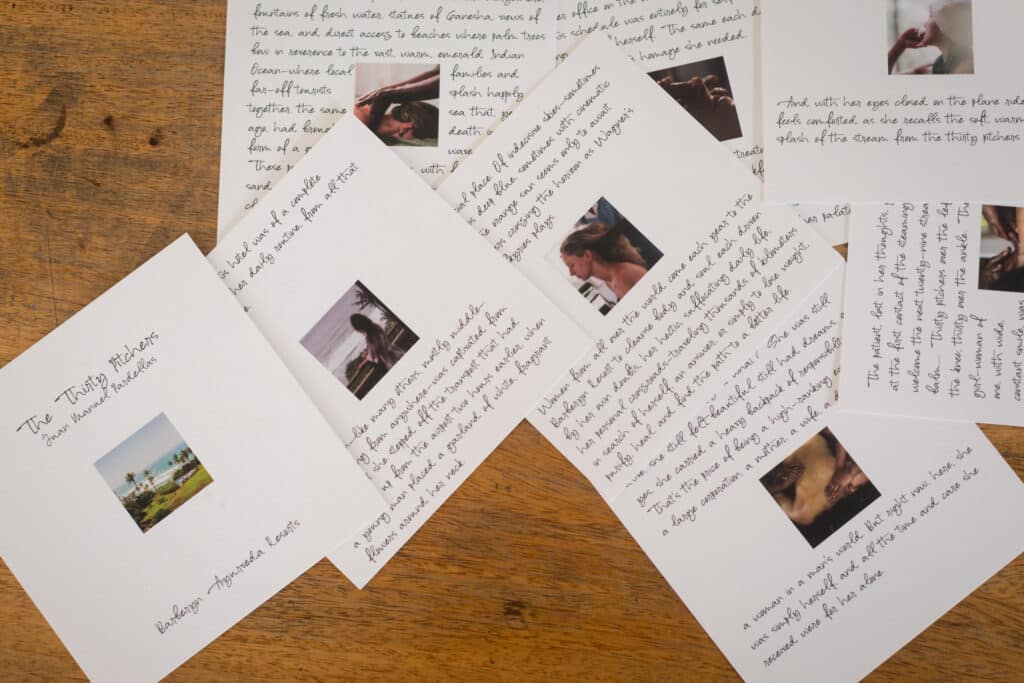 The Thirty Pitchers
Juan Manuel Pardellas
Barberyn Ayurveda Resorts
hotel was of a complete
her daily routine, from all that
like many others, mostly middle-
from anywhere-was captivated, from
she stepped off the transport that had
from the airport two hours earlier, when
a young man placed a garland of white, fragrant
flowers around her neck
fountains of fresh water, statues of Ganesha, views of
the sea, and direct access to beaches where palm trees
bow in reverence to the vast, warm, emerald Indian
Ocean-where local families and
far-off tourists splash happily
together, the same sea that,
ago, had death
form of a ware
These with
sand
place. Of indecisive skies-sometimes
deep blue, sometimes with cinematic
orange sun seems only to await
crossing the horizon as Wagner's
plays.
Women from all over the world come each year to the
Barberyn Resort to cleanse body and soul, each driven
by her own deaths, her hectic, suffocating daily life,
her personal crossroads-traveling thousands of kilometers
in search of herself, an answer, or simply to lose weight,
purify, heal, and find the path to a better life.
office on the
schedule was entirely for
herself. The same each
homage she needed.
she still felt beautiful, still had dreams,
yes, she carried a heavy backpack of
That's the price of being a high-ranking
a large corporation, a mother, a wife, a
a woman in a man's world. But right now, here, she
was simply herself, and all the time and care she
received were for her alone.
And with her eyes closed on the plane
feels comforted as she recalls the soft, warm
splash of the stream from the thirty pitchers
The patient, lost in her thoughts,
at the first contact of the steaming
welcome the next twenty-nine
balm. Thirty pitchers over the
the knee, thirty over the ankle. The
girl-woman of
me, with wide,
constant